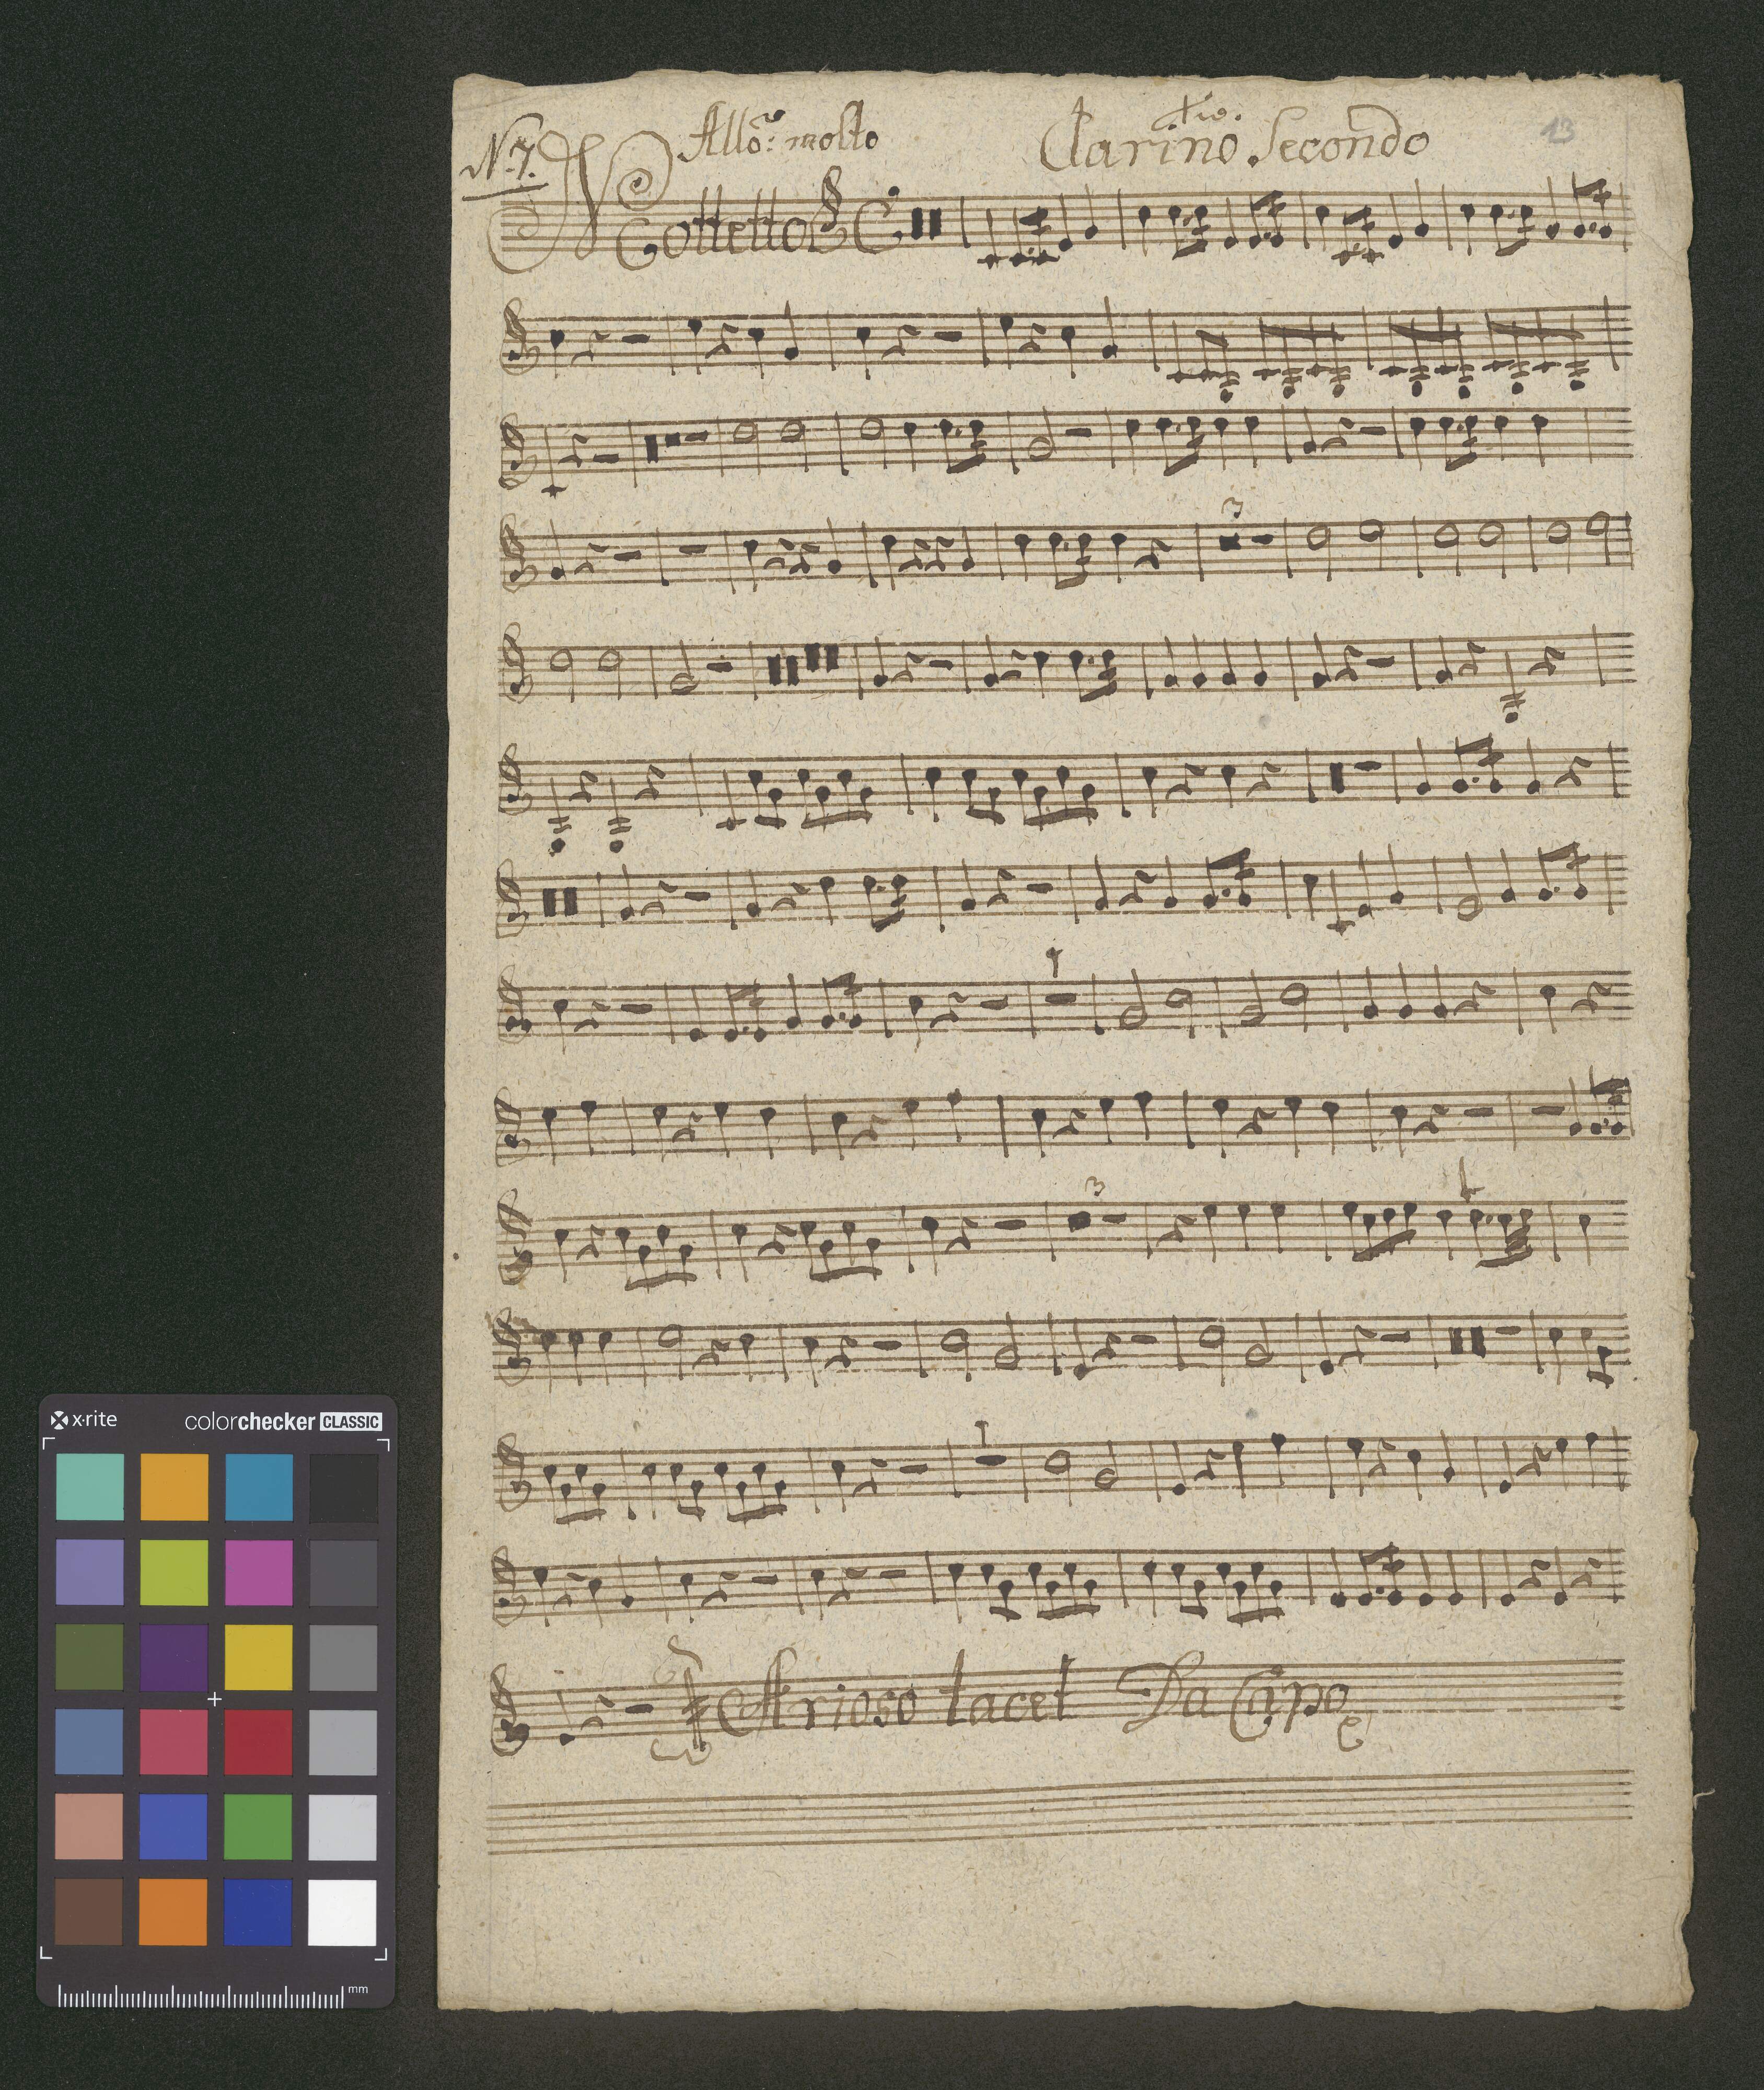 N. 7. Allo: molto Clarino Secondo 13
Mottetto
3
3
Arioso tacet Da Capo
x-rite colorchecker CLASSIC
mm